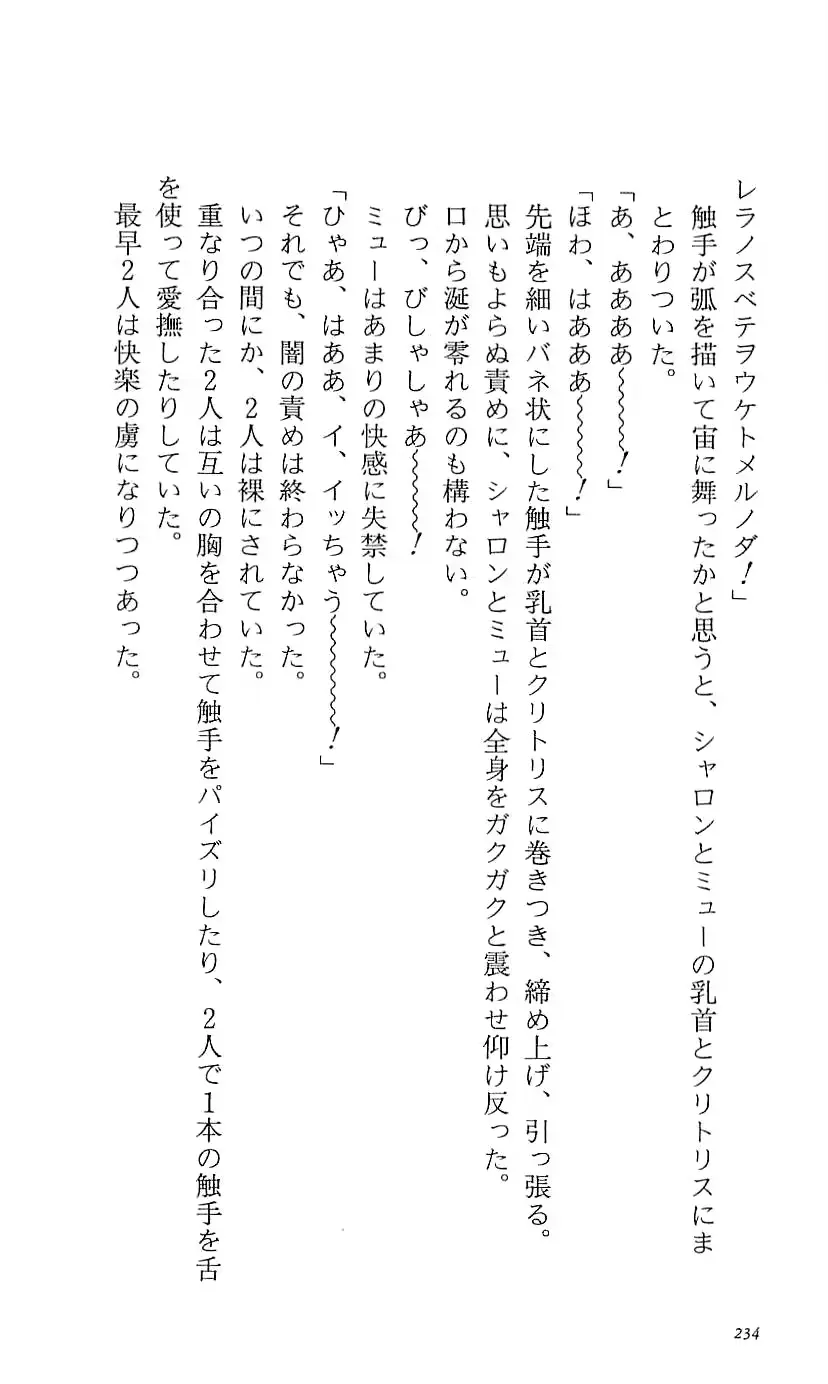 レラノスベテヲウケトメルノダ！」
触手が弧を描いて宙に舞ったかと思うと、シャロンとミューの乳首とクリトリスにま
とわりついた。
「あ、ああああ〜〜〜〜！」
「ほわ、はあああ〜〜〜〜！」
先端を細いバネ状にした触手が乳首とクリトリスに巻きつき、締め上げ、引っ張る。
思いもよらぬ責めに、シャロンとミューは全身をガクガクと震わせ仰け反った。
口から涎が零れるのも構わない。
びっ、びしゃしゃあ〜〜〜〜！
ミューはあまりの快感に失禁していた。
「ひゃあ、はああ、イ、イッちゃう〜〜〜〜〜！」
それでも、闇の責めは終わらなかった。
いつの間にか、２人は裸にされていた。
重なり合った２人は互いの胸を合わせて触手をパイズリしたり、２人で１本の触手を舌
を使って愛撫したりしていた。
最早２人は快楽の虜になりつつあった。
234